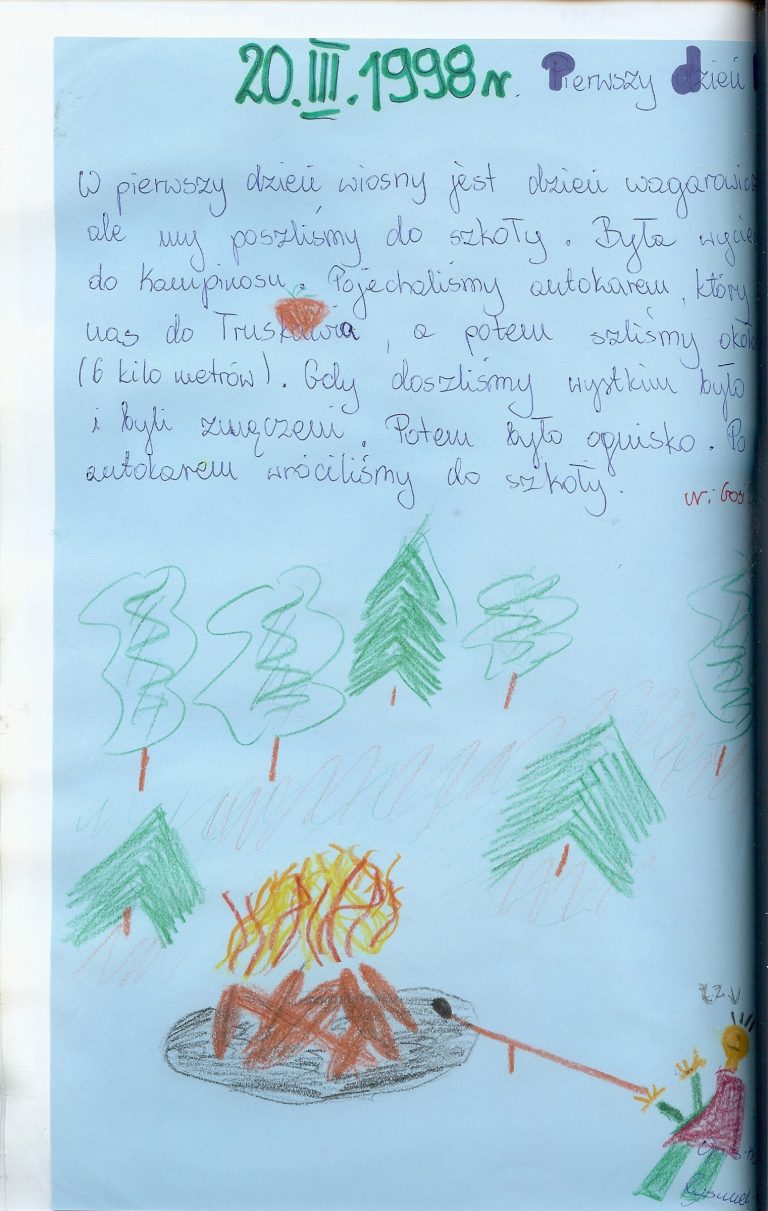 20.III.1998 r. Pierwszy dzień
W pierwszy dzień wiosny jest dzień wagarowicz
ale my poszliśmy do szkoły. Była wycie
do Kampinosu. Pojechaliśmy autokarem, który
nas do Truskawia, a potem szliśmy około
(6 kilo metrów). Gdy doszliśmy wystkim było
i byli zmęczeni. Potem było ognisko. Po
autokarem wróciliśmy do szkoły.